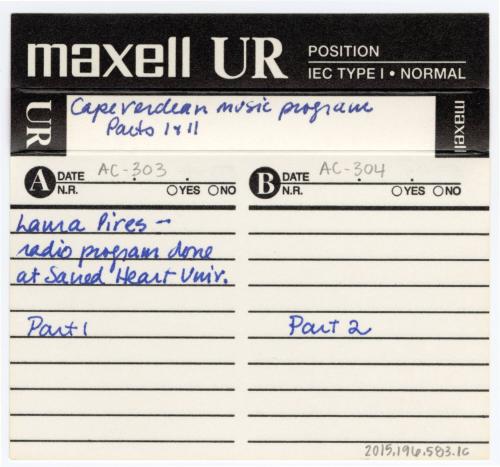 maxell UR POSITION
IEC TYPE I • NORMAL
UR
Capeverdean music program
Parts I & II
maxell
A DATE AC-303
N.R. YES NO
Laura Pires -
radio program done
at Sacred Heart Univ.
Part 1
B DATE AC-304
N.R. YES NO
Part 2
2015.196.583.1c